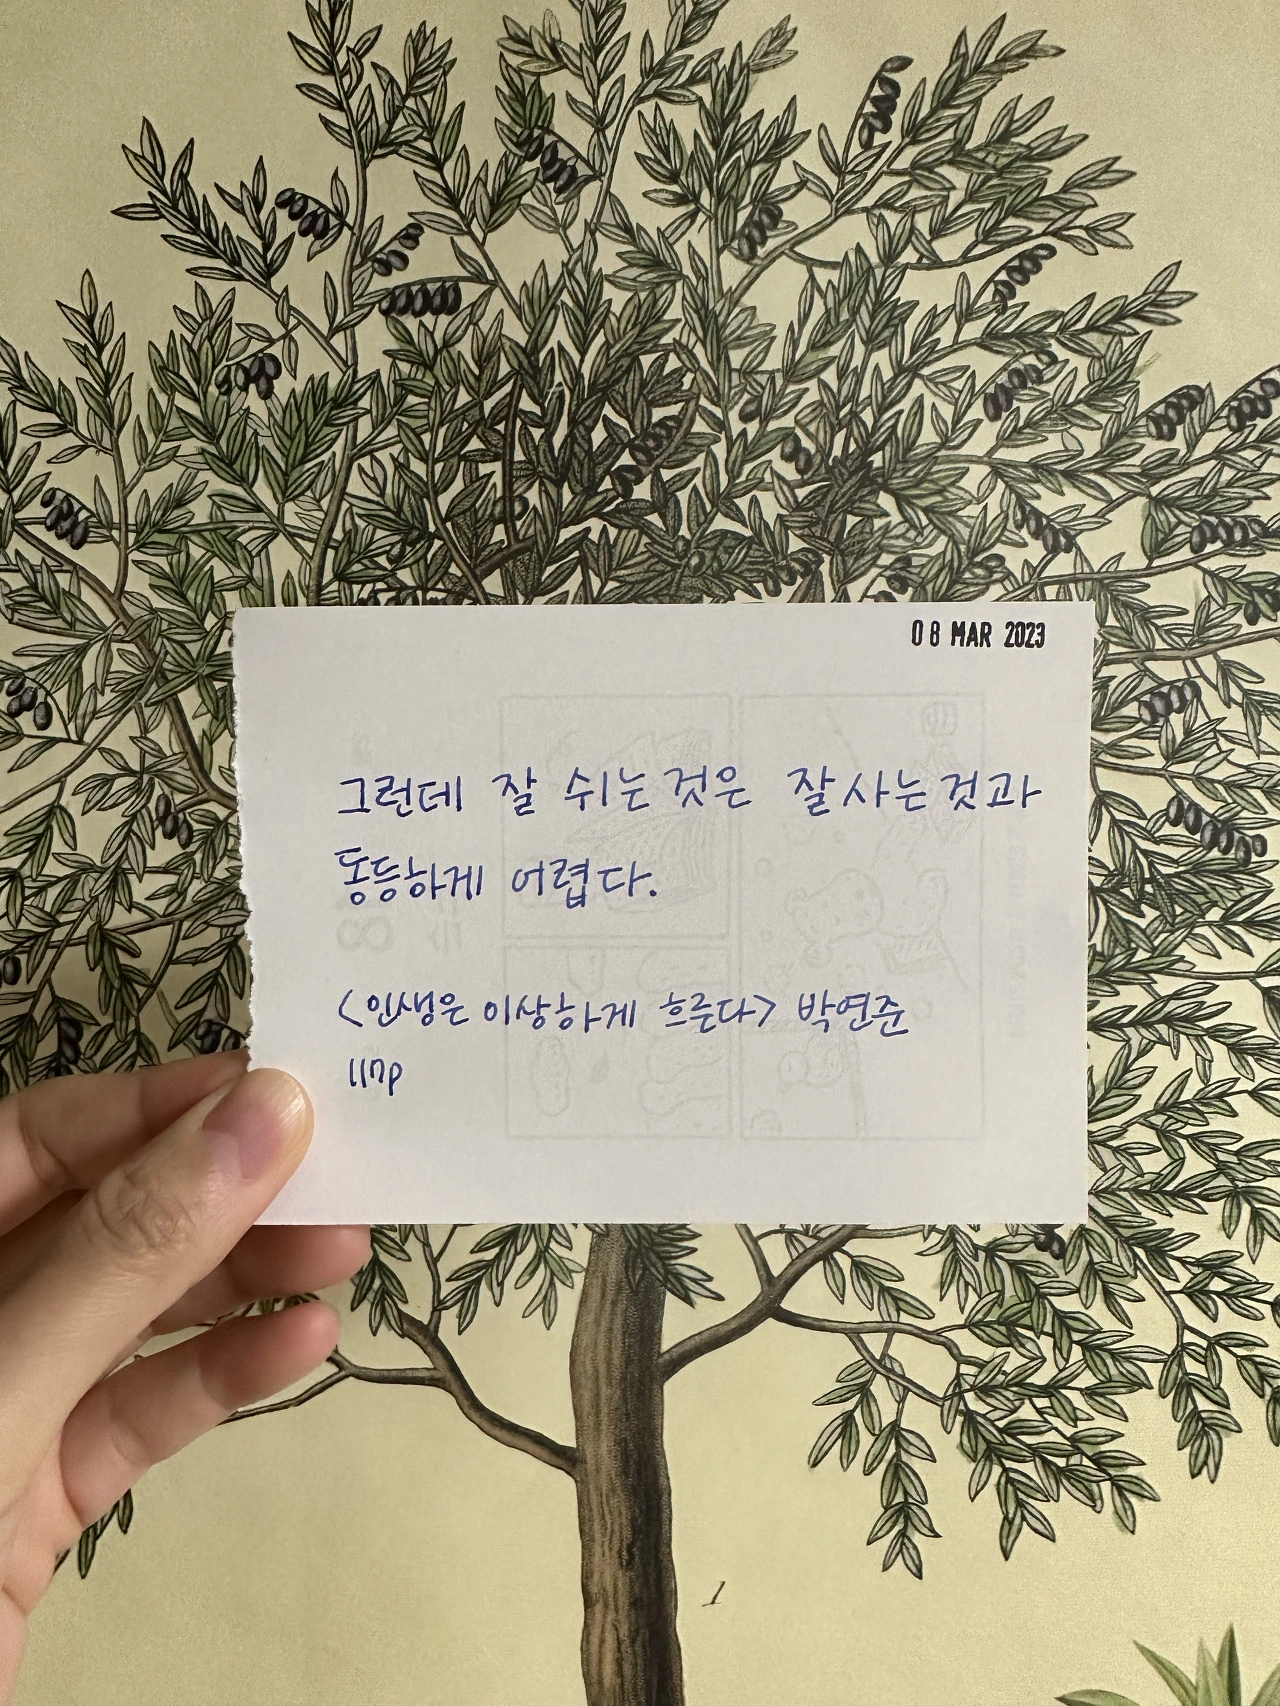 08 MAR 2023
그런데 잘 쉬는 것은 잘 사는 것과
동등하게 어렵다.
<인생은 이상하게 흐른다> 박연준
117p
1